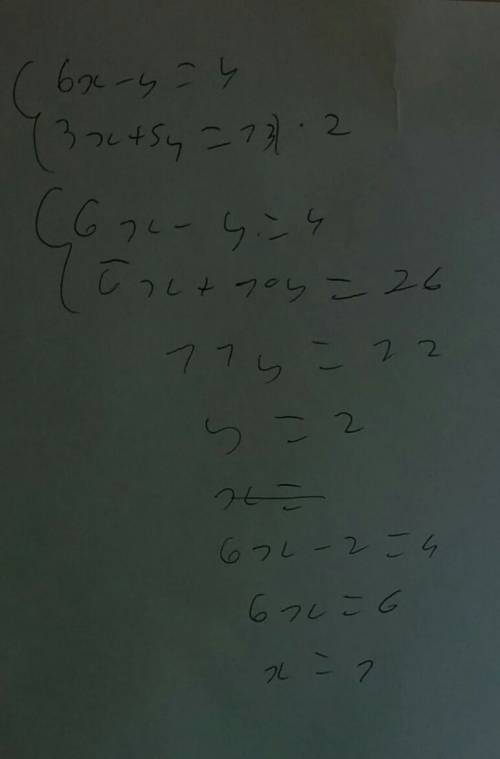 6x - y = 4
3x + 5y = 13 | · 2
6x - y = 4
6x + 10y = 26
11y = 22
y = 2
x =
6x - 2 = 4
6x = 6
x = 1